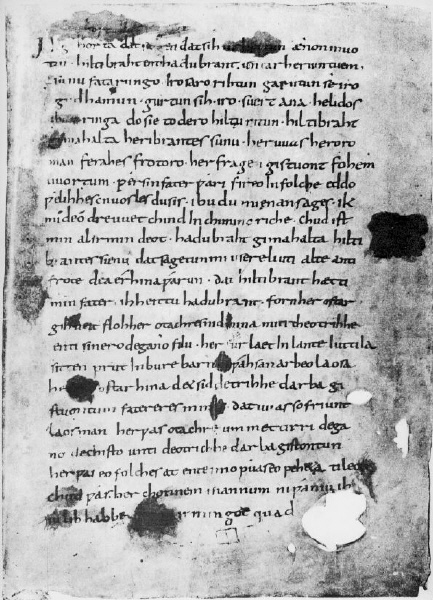 gihorta dat seggen dat sih urhettun ænon muo
tin · hiltibraht enti hadubrant · untar heriun tuem ·
sunu fatarungo · iro saro rihtun garutun se iro
gudhamun · gurtun sih · iro · suert ana · helidos
ubar ringa do sie to dero hiltu ritun · hiltibraht
gimahalta heribrantes sunu · her uuas heroro
man ferahes frotoro · her fragen gistuont fohem
uuortum · ƿer sin fater ƿari fireo In folche eddo
ƿelihhes cnuosles du sis · ibu du mi enan sages · ik
mi de odre uuet chind In chunincriche · chud ist
min al irmin deot · hadubraht gimahalta hilti
brantes sunu dat sagetun mi usere liuti alte anti
frote dea érhina ƿarun · dat hiltibrant hætti
min fater · ih heittu hadubrant · forn her ostar
gihueit floh her otachres nid hina miti theotrihhe
enti sinero degano filu · her furlaet In lante luttila
sitten prut In bure barn unƿahsan arbeo laosa
ostar hina d& sid detrihhe darba gi
stuontun fateres mines · dat uuas so friunt
laos man her ƿas otachre ummet tirri dega
no dechisto unti deotrichhe darba gistontun
her ƿas eo folches at ente imo ƿuas eo peheta ti leop
chud ƿas her chonnem mannum ni ƿaniu ih
iu lib habbe irmingot quad